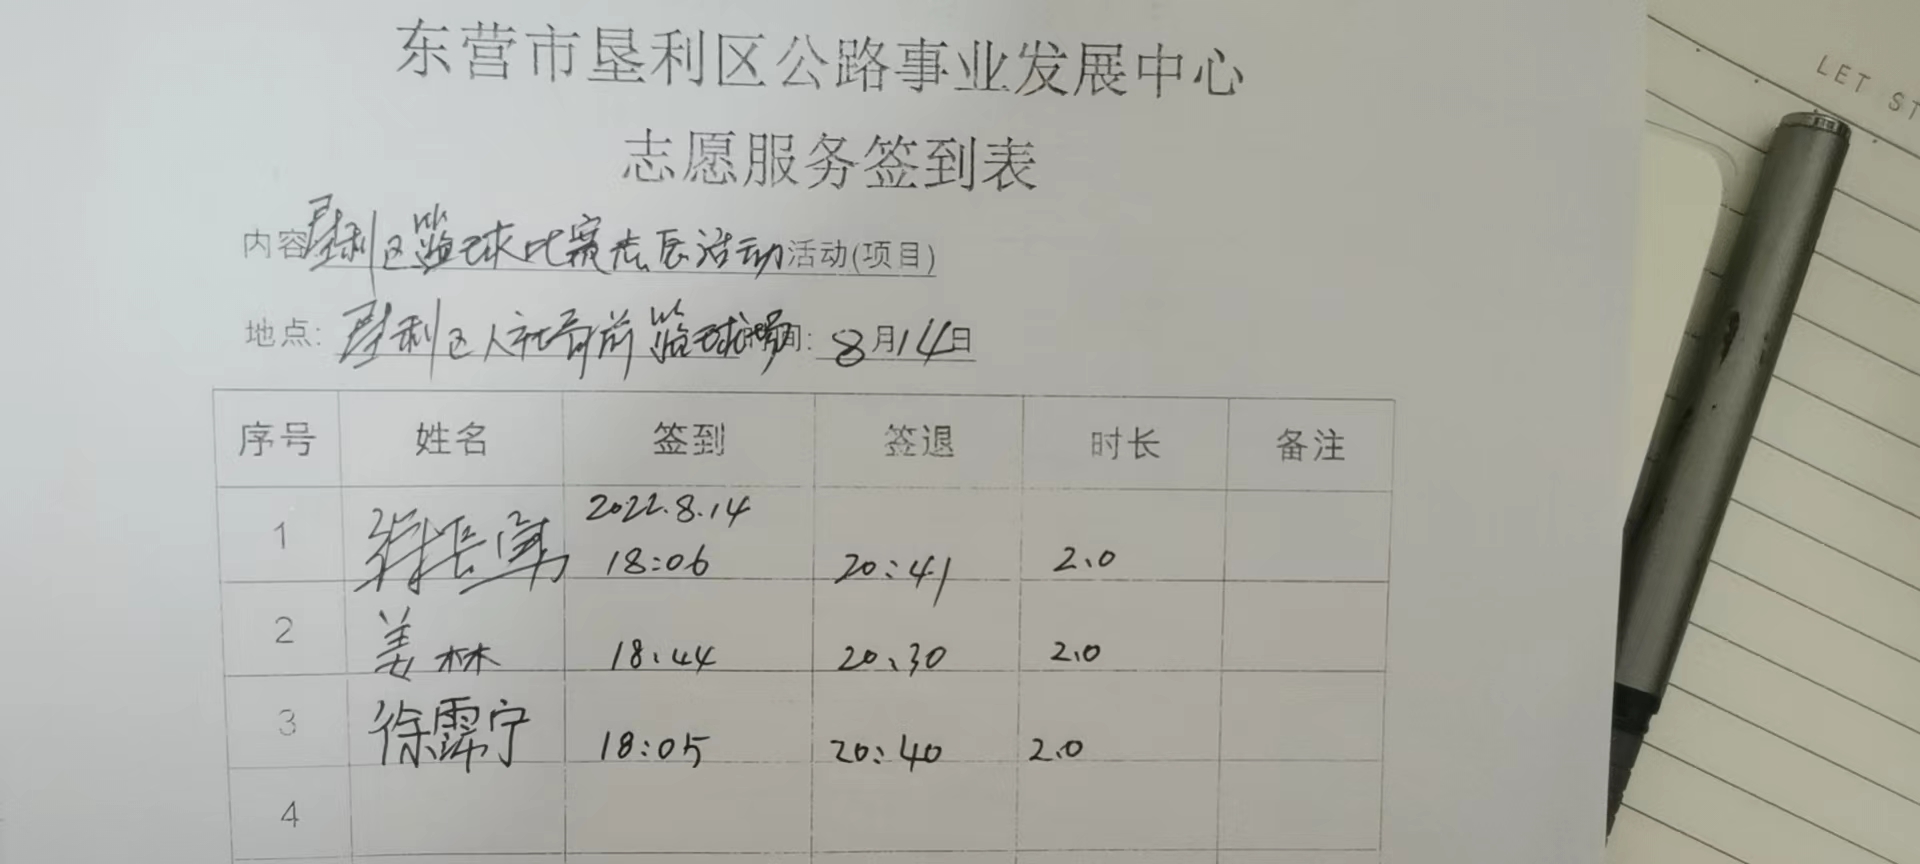 东营市垦利区公路事业发展中心
志愿服务签到表
内容 垦利区篮球比赛志愿活动活动(项目)
地点: 垦利区人社局前篮球场 间: 8月14日
序号 姓名 签到 签退 时长 备注
2022.8.14
1 18:06 20:41 2.0
2 姜林 18:44 20:30 2.0
3 徐霈宁 18:05 20:40 2.0
4
LET ST